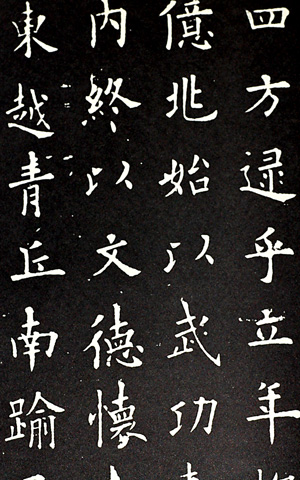 四方逮乎立年
億兆始以武功
内終以文德懷
東越青丘南踰